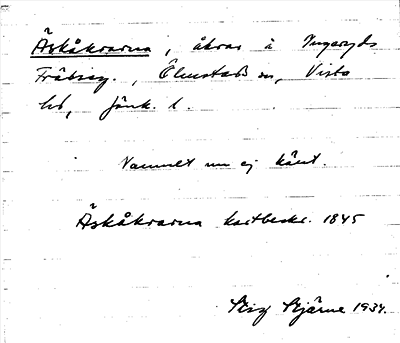 Äskåkrarna, åkrar å Vngaryds
Fräbsg., Ölmstads sn, Vista
hd, Jönk. l.
Namnet nu ej känt.
Äskåkrarna kartbeskr. 1845
Stig Stjärne 1934.